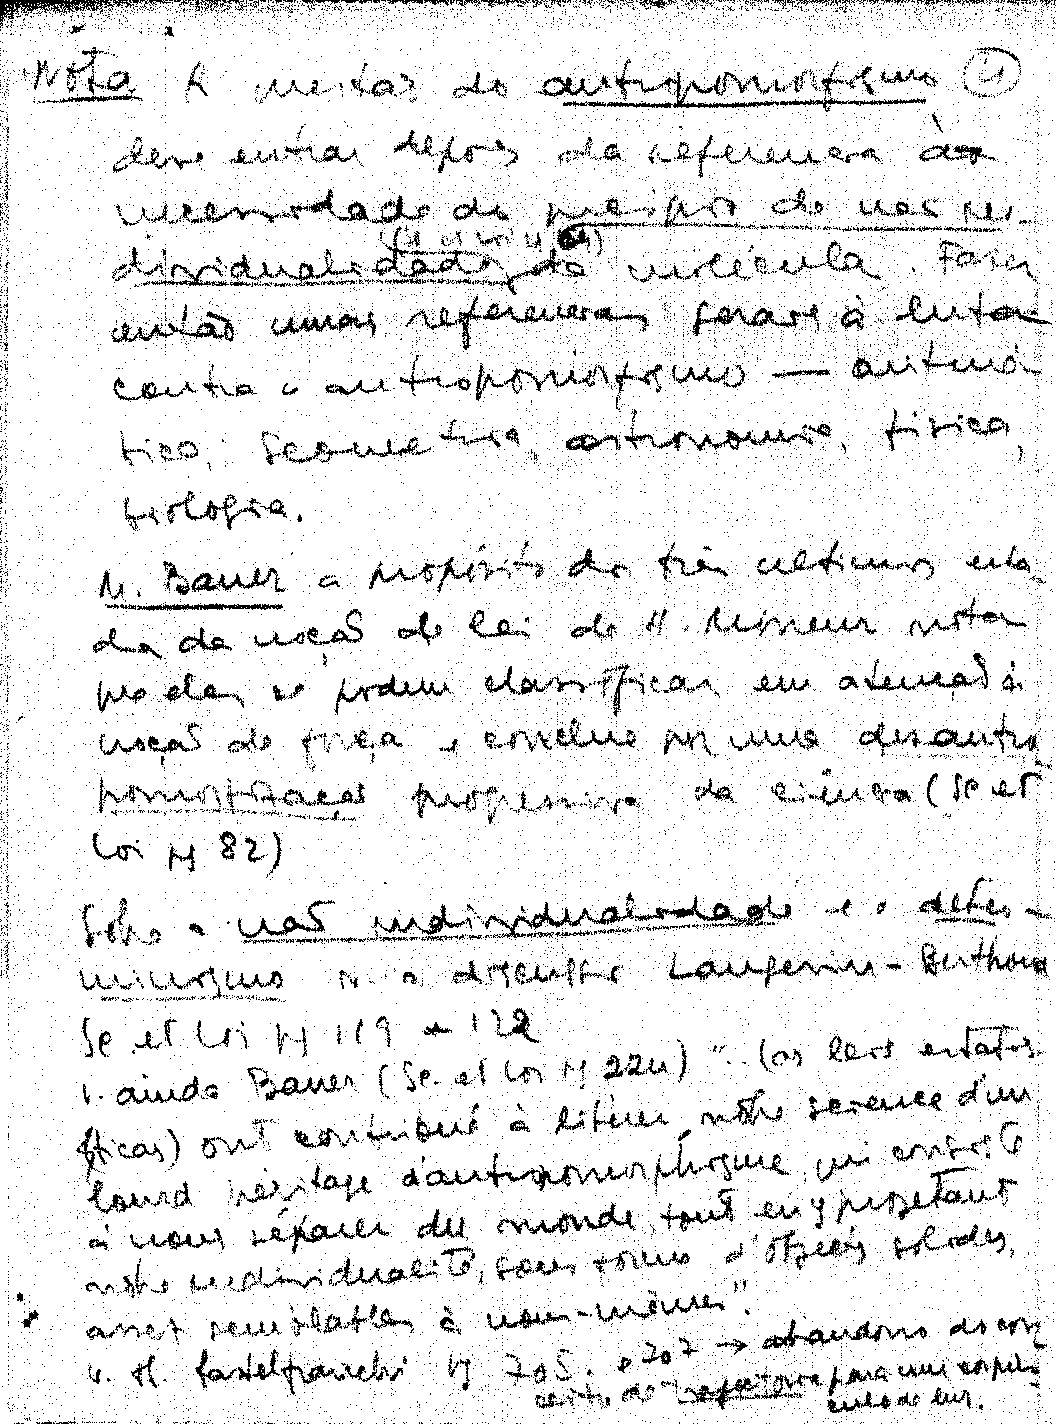 Nota A questão do antropomorfismo (4)
deve entrar depois da referencia à
necessidade do principio de não in-
dividualidade da molécula. Fazer
então umas referencias gerais à luta
contra o antropomorfismo — aritmé-
tica, Geometria, astronomia, física,
biologia.
M. Bauer a propósito dos três ultimos esta-
da noção de lei de H. Mineur nota
que eles se podem classificar em atenção à
noção de força e conclue por uma desantro
pomorfização progressiva da ciência (Sc et
Loi pg 82)
Sobre a não individualidade e o deter-
minismo v. a discussão Langevin - Berthoud
Sc. et Loi pg 119 a 122
V. ainda Bauer (Sc. et Loi pg 224) "(as leis estatís-
ticas) ont contribué à libérer notre science d'un
lourd héritage d'antropomorphisme qui consiste
à nous séparer du monde, tout en y projetant
notre individualité, sous forme d'objets solides,
assez semblables à nous-mêmes".
v. H. Castelfranchi pg 705. e 707 → abandono do con
ceito de trajectoria para uma corpús-
culo de luz.